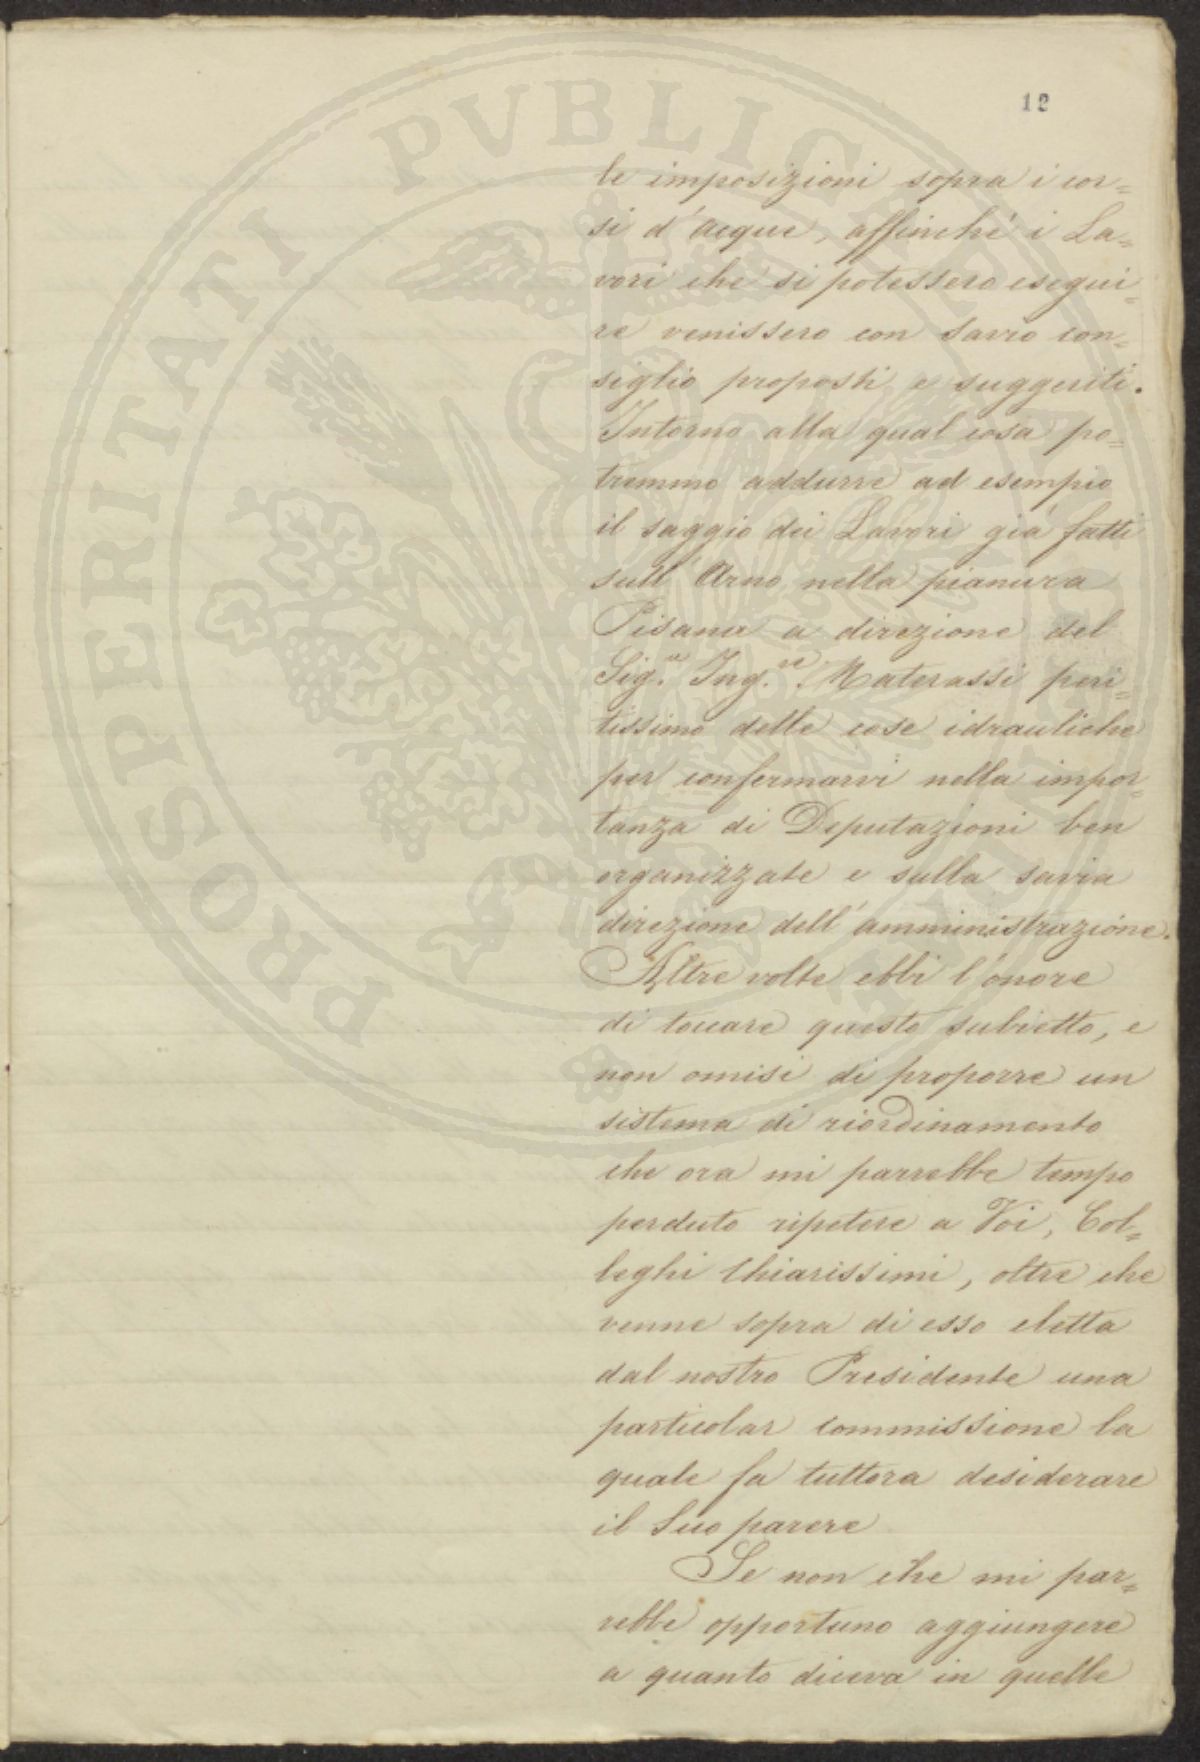 PROSPERITATI PVBLICAE AVGENDAE
12
le imposizioni sopra i cor=
si d'acque, affinchè i La=
vori che si potessero esegui=
re venissero con savio con=
siglio proposti e suggeriti.
Intorno alla qual cosa po=
tremmo addurre ad esempio
il saggio dei Lavori già fatti
sull'Arno nella pianura
Pisana a direzione del
Sig.re Ing.re Materassi peri=
tissimo delle cose idrauliche
per confermarvi nella impor=
tanza di Deputazioni ben
organizzate e sulla savia
direzione dell'amministrazione.
Altre volte ebbi l'onore
di toccare questo subietto, e
non omisi di proporre un
sistema di riordinamento
che ora mi parrebbe tempo
perduto ripetere a Voi, Col=
leghi Chiarissimi, oltre che
venne sopra di esso eletta
dal nostro Presidente una
particolar commissione la
quale fa tuttora desiderare
il Suo parere
Se non che mi par=
rebbe opportuno aggiungere
a quanto diceva in quelle